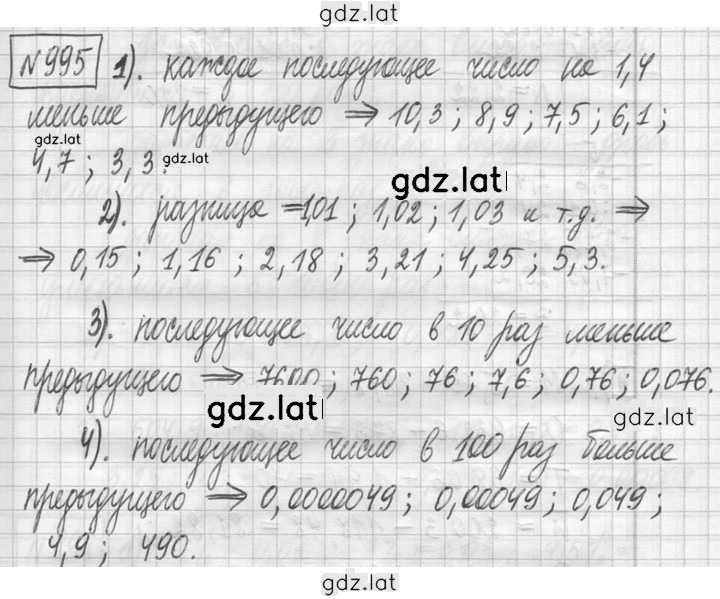 gdz.lat
№995 1). каждое последующее число на 1,4
меньше предыдущего ⇒ 10,3; 8,9; 7,5; 6,1;
gdz.lat
4,7; 3,3.
gdz.lat
gdz.lat
2). разница = 1,01; 1,02; 1,03 и т.д. ⇒
⇒ 0,15; 1,16; 2,18; 3,21; 4,25; 5,3.
3). последующее число в 10 раз меньше
предыдущего ⇒ 7600; 760; 76; 7,6; 0,76; 0,076.
gdz.lat
gdz.lat
4). последующее число в 100 раз больше
предыдущего ⇒ 0,0000049; 0,00049; 0,049;
4,9; 490.
gdz.lat